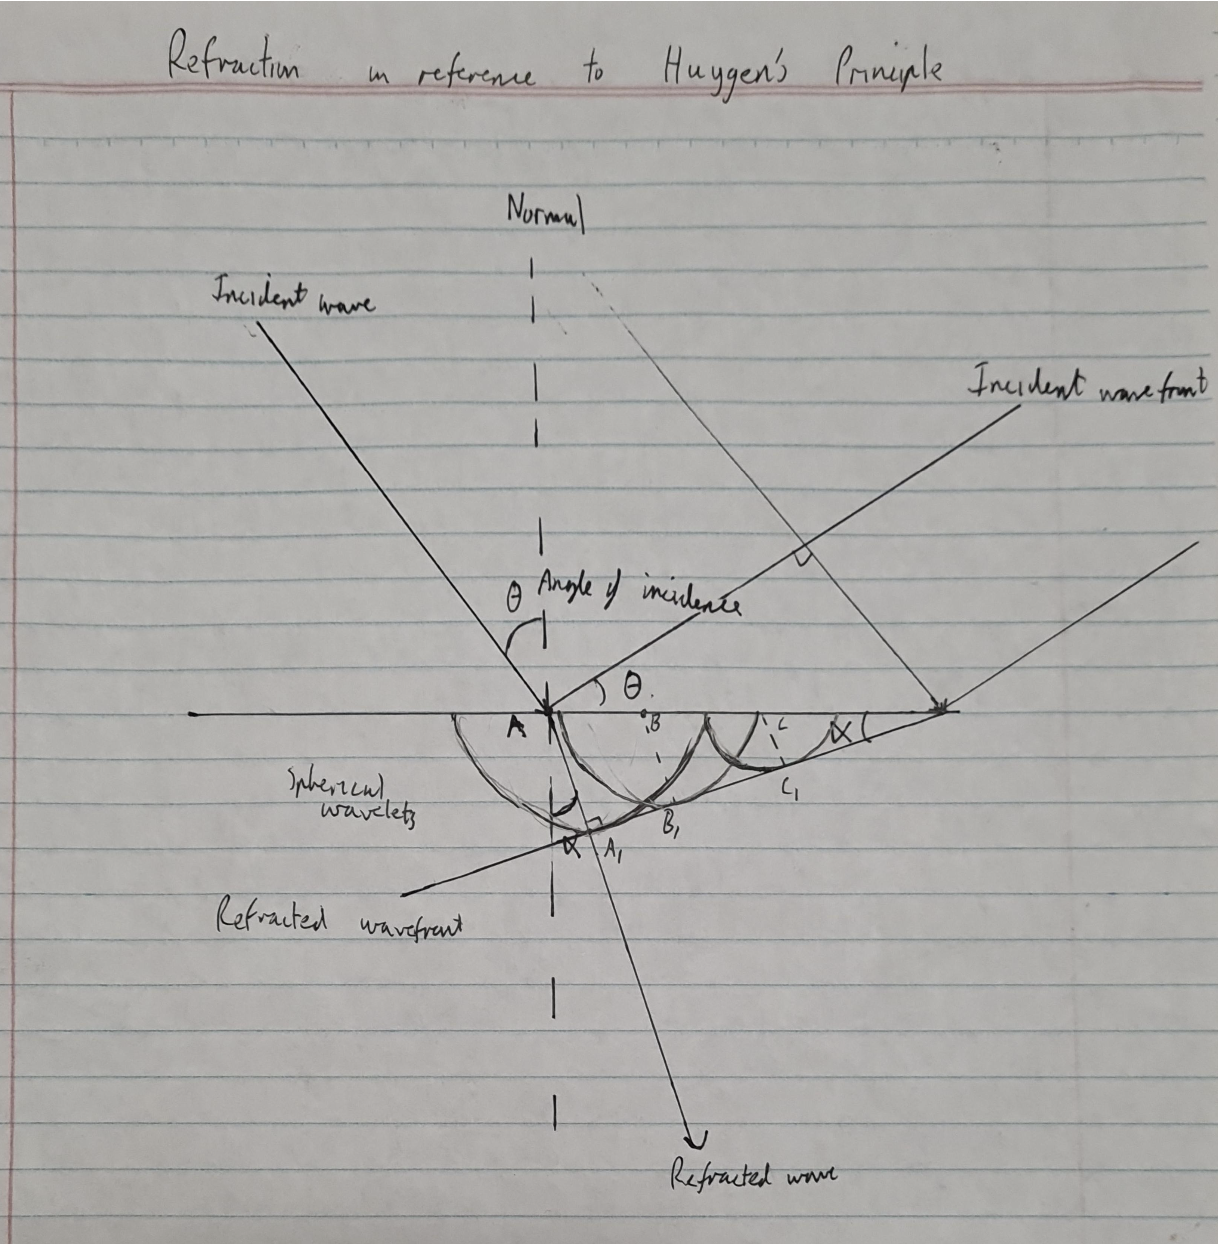 Refraction in reference to Huygen's Principle
Normal
Incident wave
Incident wavefront
θ Angle of incidence
θ
A
B
C
α
Spherical
wavelets
C₁
B₁
α
A₁
Refracted wavefront
Refracted wave